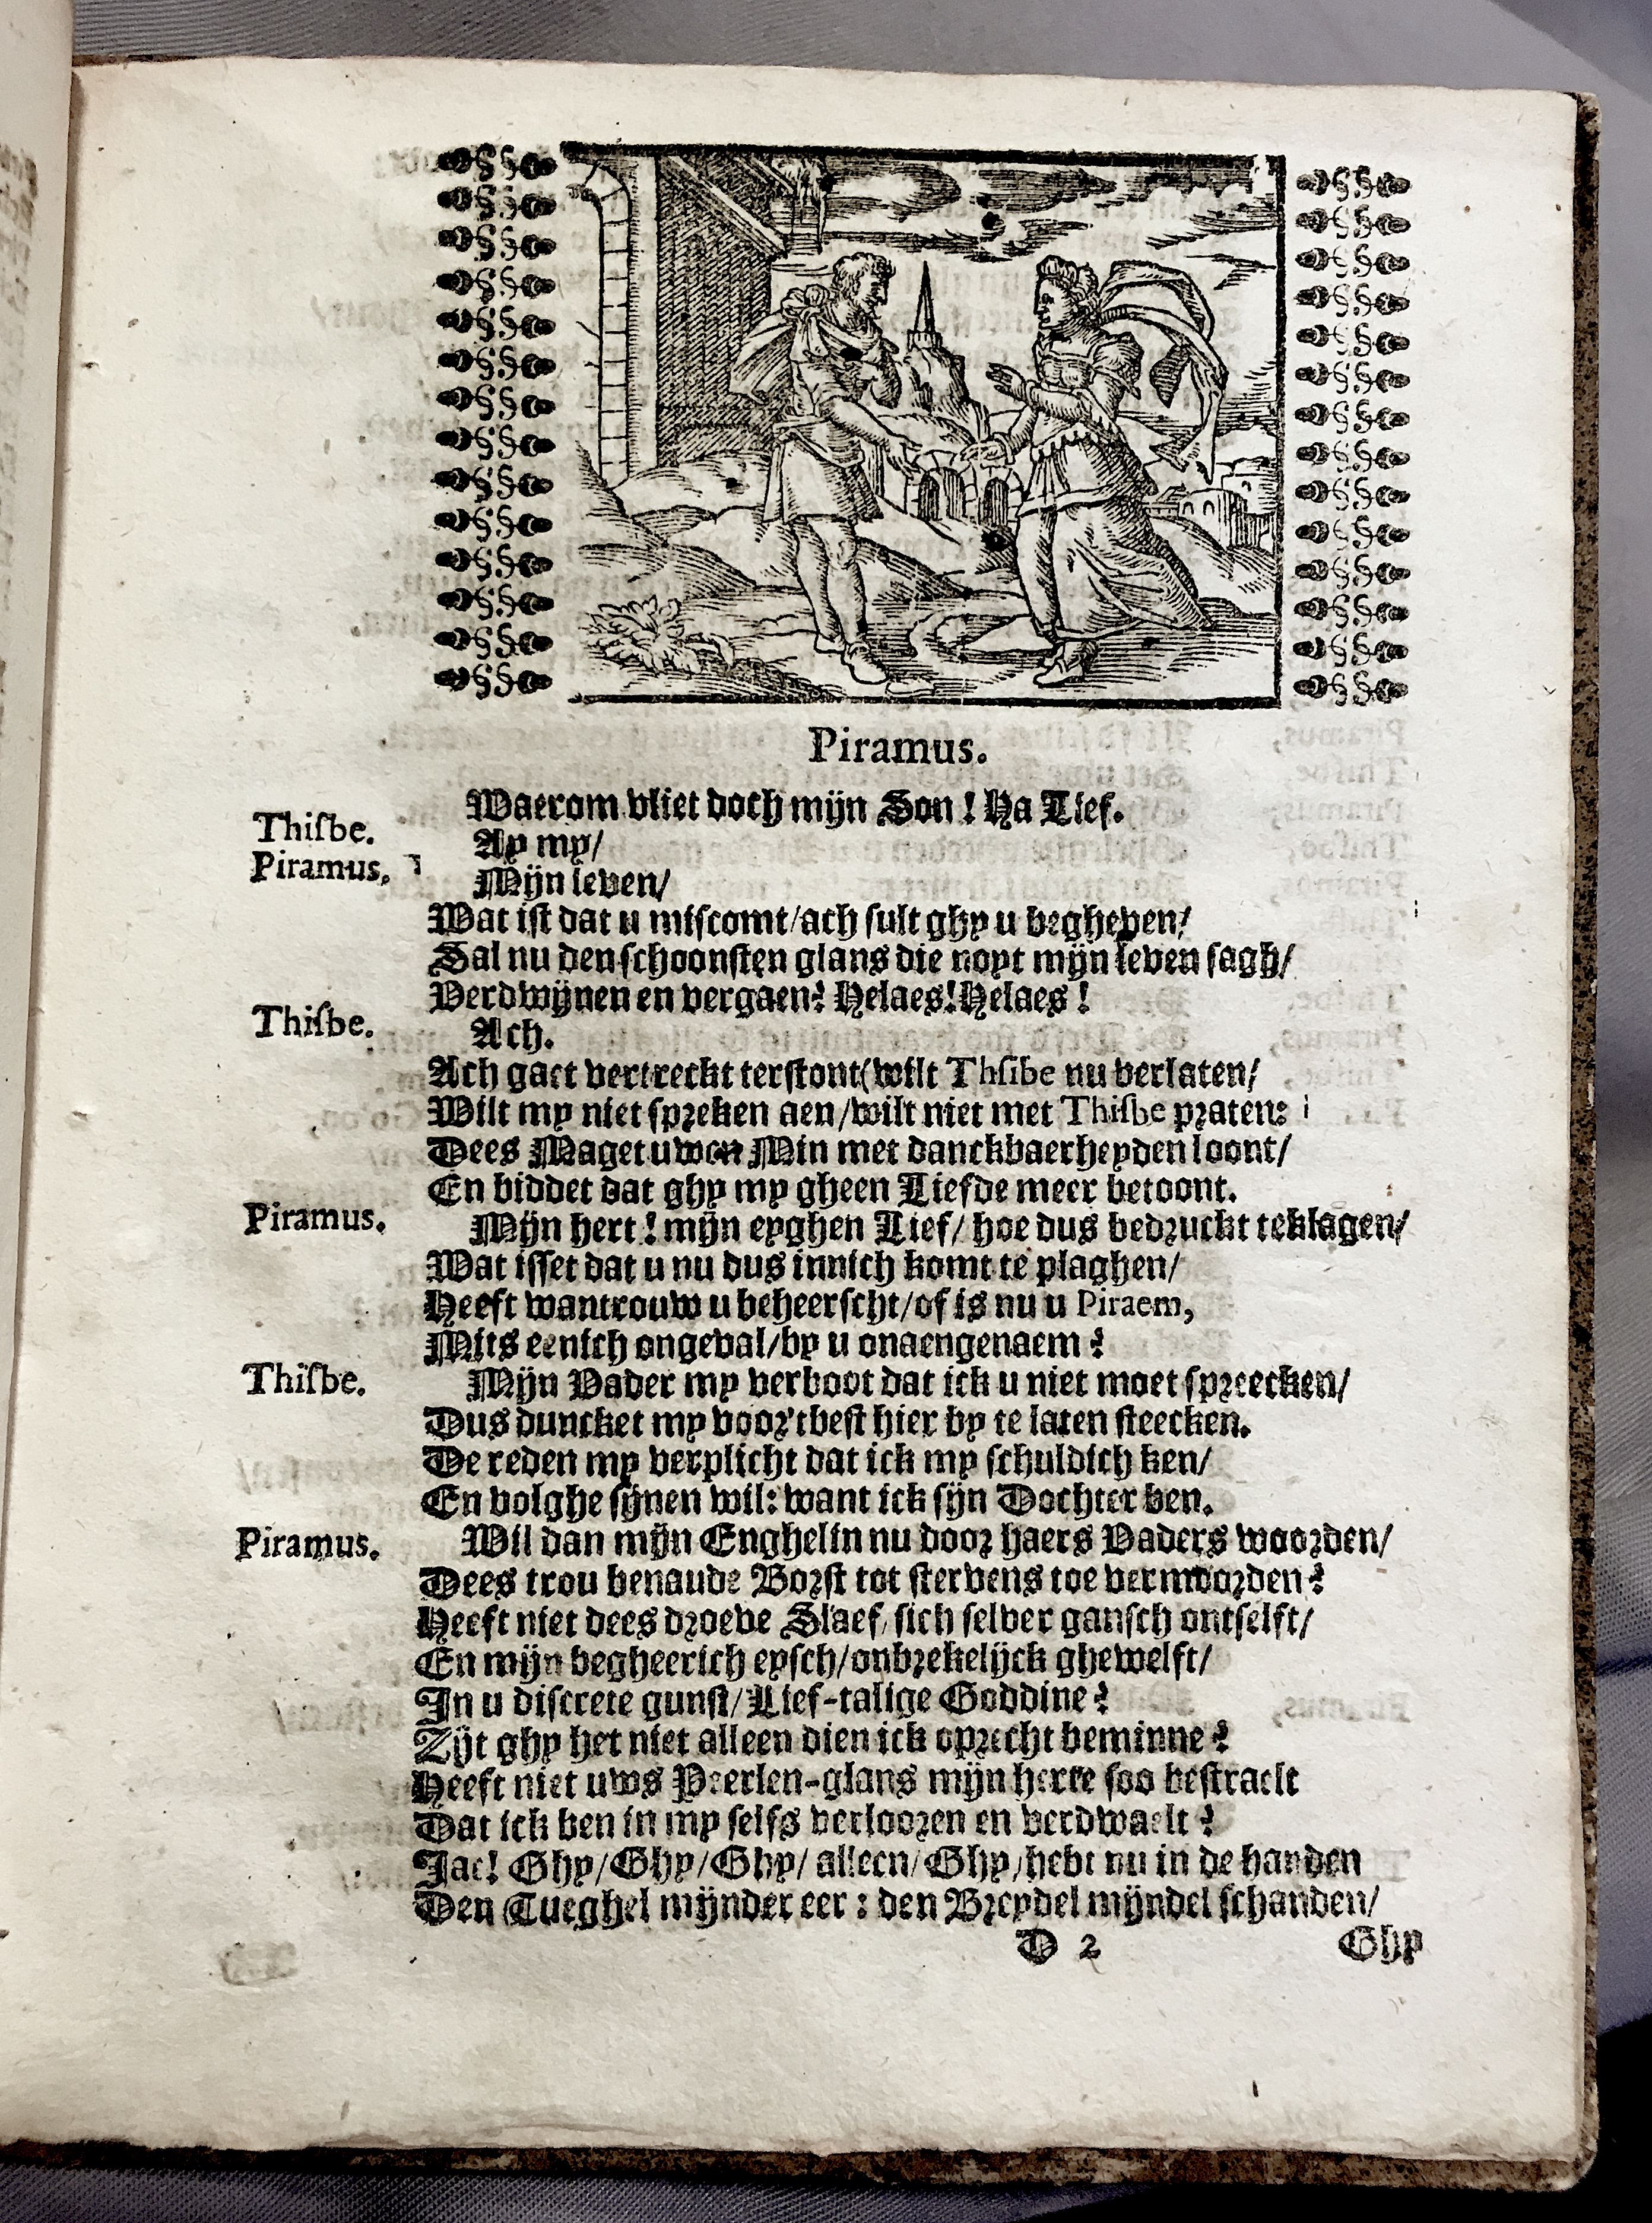 Piramus.
Waerom vliet doch mijn Son! Ha Lief.
Thisbe. Ay my/
Piramus. Mijn leven/
Wat ist dat u miscomt/ach sult ghy u begheven/
Sal nu den schoonsten glans die noyt mijn leven sagh/
Verdwijnen en vergaen? Helaes! Helaes!
Thisbe. Ach.
Ach gaet vertreckt terstont (wilt Thsibe nu verlaten/
Wilt my niet spreken aen/wilt niet met Thisbe praten:
Dees Maget uwen Min met danckbaerheyden loont/
En biddet dat ghy my gheen Liefde meer betoont.
Piramus. Mijn hert! mijn eyghen Lief/ hoe dus bedruckt te klagen/
Wat isset dat u nu dus innich komt te plaghen/
Heeft wantrouw u beheerscht/of is nu u Piraem,
Mits eenich ongeval/by u onaengenaem?
Thisbe. Mijn Vader my verboot dat ick u niet moet spreecken/
Dus duncket my voor't best hier by te laten steecken.
De reden my verplicht dat ick my schuldich ken/
En volghe sijnen wil: want ick sijn Dochter ben.
Piramus. Wil dan mijn Enghelin nu door haers Vaders woorden/
Dees trou benaude Borst tot stervens toe vermoorden?
Heeft niet dees droeve Slaef, sich selver gansch ontselft/
En mijn begheerich eysch/onbrekelijck ghewelft/
In u discrete gunst/Lief-talige Goddine?
Zijt ghy het niet alleen dien ick oprecht beminne?
Heeft niet uws Peerlen-glans mijn herte soo bestraelt
Dat ick ben in my selfs verlooren en verdwaelt?
Jae! Ghy/Ghy/Ghy/ alleen/Ghy/hebt nu in de handen
Den Tueghel mijnder eer: den Breydel mijndel schanden/
D 2 Ghy